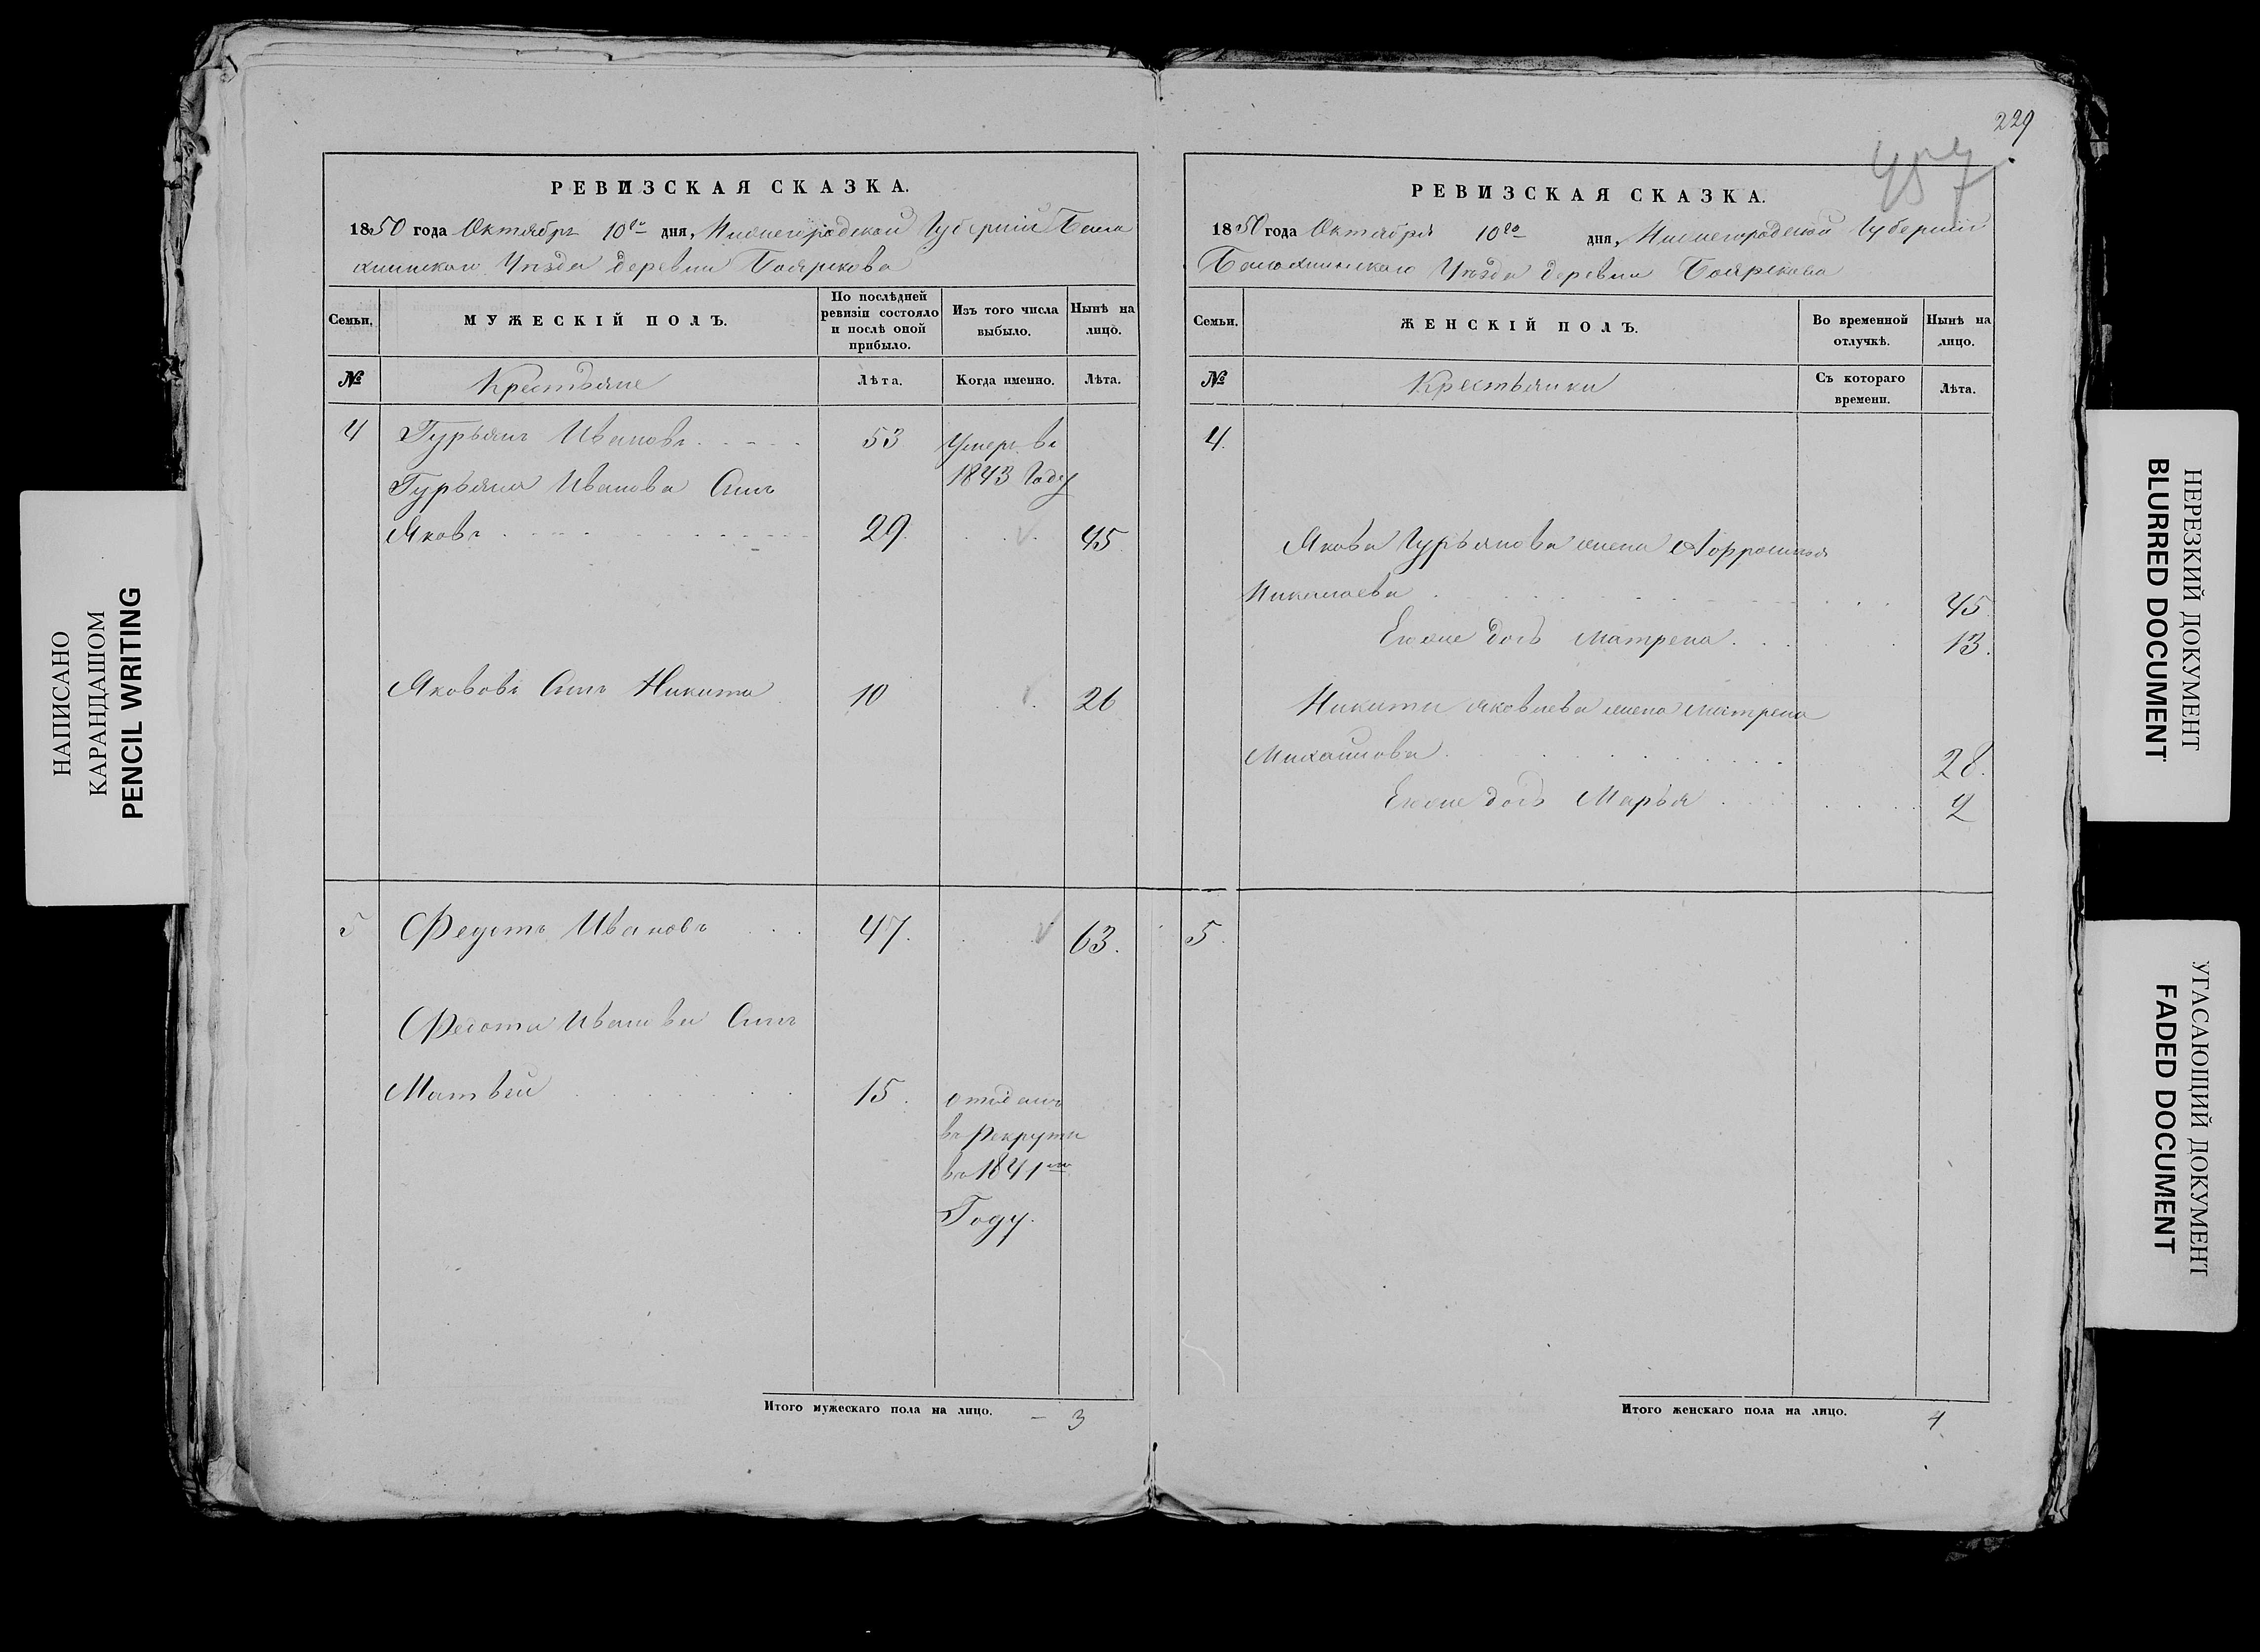 229
457
РЕВИЗСКАЯ СКАЗКА.
1850 года Октября 10го дня, Нижегородской Губернии Бала
хнинскаго Уѣзда деревни Бояркова
Семьи.
МУЖЕСКІЙ ПОЛЪ.
По послѣдней ревизіи состояло и послѣ оной прибыло.
Изъ того числа выбыло.
Нынѣ на лицо.
№
Крестьяне
Лѣта.
Когда именно.
Лѣта.
4 Гурьянъ Ивановъ 53 Умеръ въ
1843 Году
Гурьяна Иванова Сынъ
Яковъ 29 45
Яковов Сынъ Никита 10 26
5 Федотъ Ивановъ 47. 63.
Федота Иванова Сынъ
Матвей 15. отданъ
въ Рекруты
въ 1841мъ
Году.
Итого мужескаго пола на лицо. — 3
РЕВИЗСКАЯ СКАЗКА.
1850 года Октября 10го дня, Нижегородской Губернии
Балахнинскаго Уѣзда деревни Бояркова
Семьи.
ЖЕНСКІЙ ПОЛЪ.
Во временной отлучкѣ.
Нынѣ на лицо.
№
Крестьянки
Съ котораго времени.
Лѣта.
4.
Якова Гурьянова жена
Николаева 45.
Ево же дочь Матрена 13.
Никиты Яковлева жена Матрена
Михайлова 28.
Ево же дочь Марья 2
5.
Итого женскаго пола на лицо. 4
НАПИСАНО
КАРАНДАШОМ
PENCIL WRITING
НЕРЕЗКИЙ ДОКУМЕНТ
BLURRED DOCUMENT
УГАСАЮЩИЙ ДОКУМЕНТ
FADED DOCUMENT